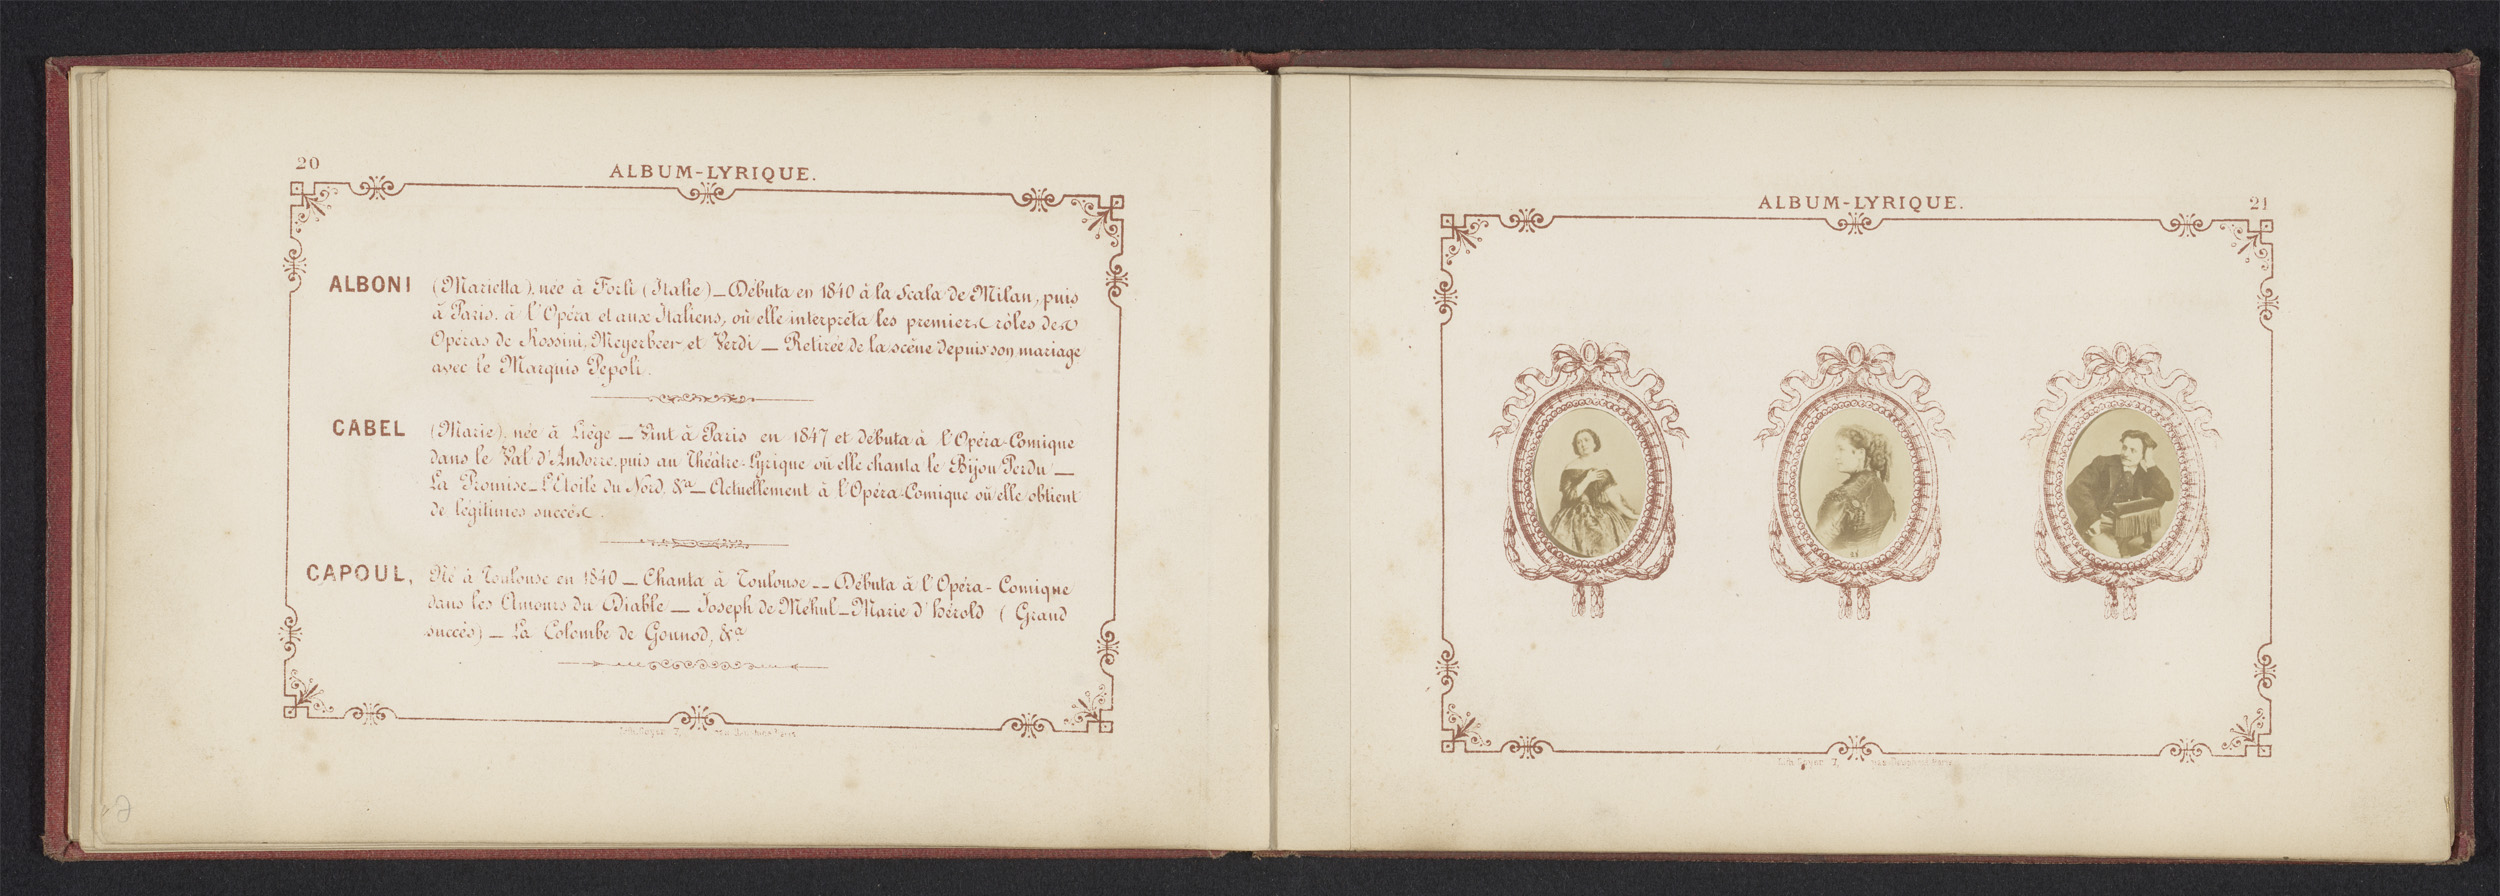 20
ALBUM-LYRIQUE.
ALBONI (Marietta), née à Forli (Italie) — Débuta en 1840 à la Scala de Milan, puis
à Paris, à l'Opéra et aux Italiens, où elle interpréta les premiers rôles des
Opéras de Rossini, Meyerbeer et Verdi — Retirée de la scène depuis son mariage
avec le Marquis Pepoli.
CABEL (Marie), née à Liège — Vint à Paris en 1847 et débuta à l'Opéra-Comique
dans le Val d'Andorre, puis au Théâtre-Lyrique où elle chanta le Bijou Perdu —
La Promise — L'Etoile du Nord, &a — Actuellement à l'Opéra-Comique où elle obtient
de légitimes succès.
CAPOUL, Né à Toulouse en 1840 — Chanta à Toulouse -- Débuta à l'Opéra-Comique
dans les Amours du Diable — Joseph de Méhul — Marie d'Hérold (Grand
succès) — La Colombe de Gounod, &a
Lith. Goyer 7, Paris
ALBUM-LYRIQUE.
21
Lith. Goyer 7, Paris